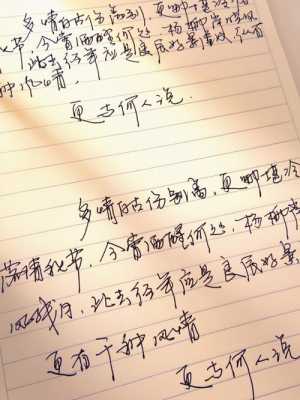 多情自古伤离别,更那堪冷
秋节,今宵酒醒何处,杨柳岸晓风
此去经年应是良辰好景虚设,纵有
种风情
更与何人说
多情自古伤别离,更那堪冷
落清秋节,今宵酒醒何处,杨柳岸
风残月,此去经年应是良辰好景
更有千种风情
更与何人说